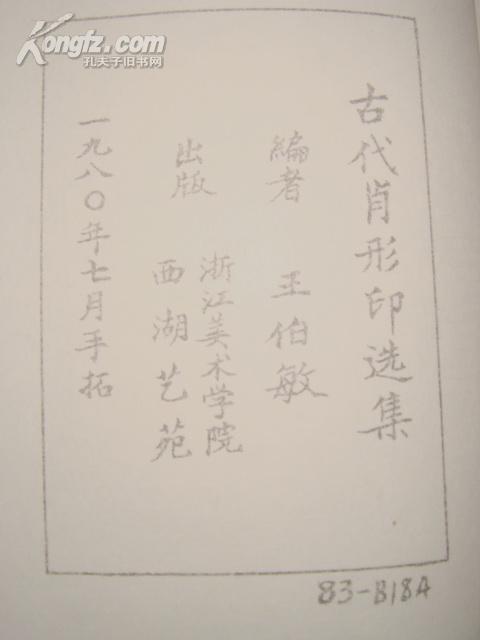 Kongfz.com
孔夫子旧书网
古代肖形印选集
編者 王伯敏
出版 浙江美术学院
西湖艺苑
一九八〇年七月手拓
83-B18A